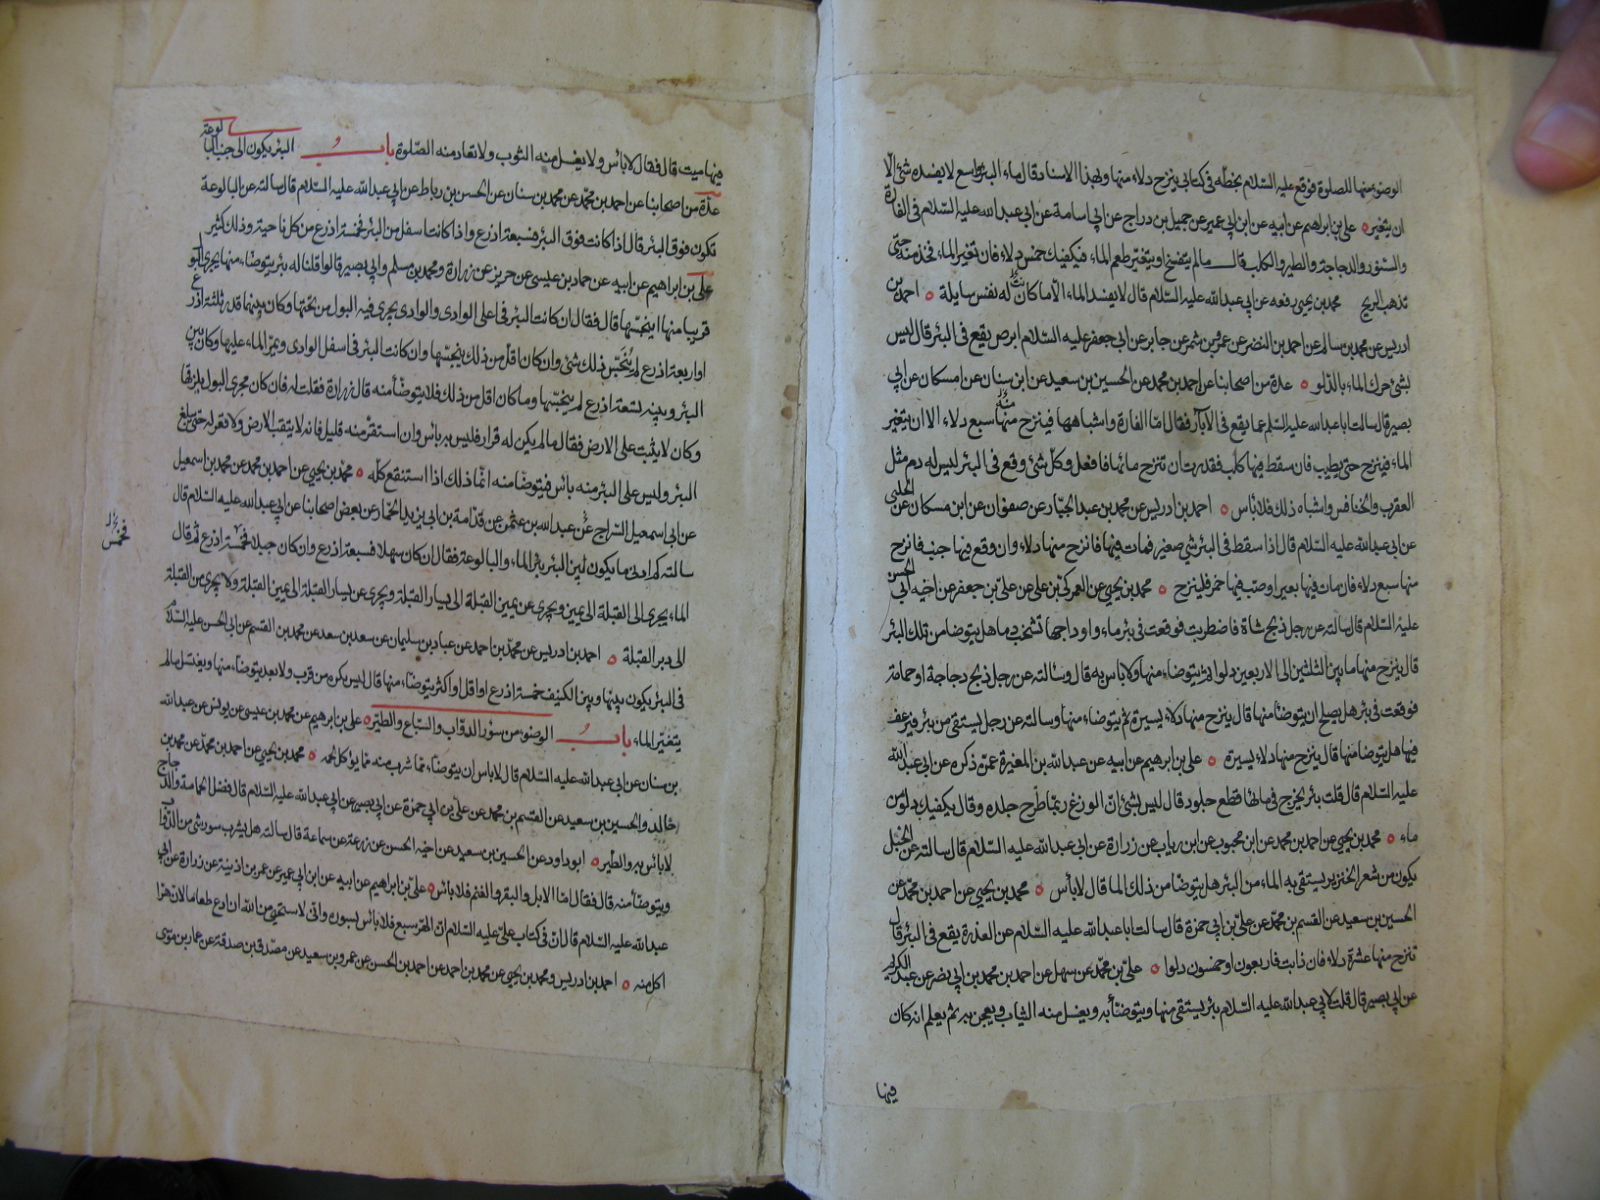 الوضوء منها للصلوة فوقع عليه السّلام بخطّه فى كتابى ينزح دلاء منها وبهذا الاسناد قال ماء البئر واسع لا يفسده شئ الّا
ان يتغير ه على بن ابراهيم عن ابيه عن ابن ابى عمير عن جميل بن دراج عن ابى اسامة عن ابى عبد الله عليه السّلام فى الفارة
والسنّور والدجاجة والطير والكلب قال ما لم يتفسخ او يتغيّر طعم الماء فيكفيك خمس دلاء فان تغير الماء فخذ منه حتى
تذهب الريح محمد بن يحيى رفعه عن ابى عبد الله عليه السّلام قال لا يفسد الماء الّا ما كان له نفس سايلة ه احمد بن
ادريس عن محمد بن سالم عن احمد بن النضر عن عمرو بن شمر عن جابر عن ابى جعفر عليه السّلام ابرص يقع فى البئر قال ليس
بشئ حرك الماء بالدّلو ه عدة من اصحابنا عن احمد بن محمد عن الحسين بن سعيد عن ابن سنان عن ابن مسكان عن ابى
بصير قال سالت ابا عبد الله عليه السّلم عما يقع فى الآبار فقال امّا الفارة واشباهها فينزح منها سبع دلاء الا ان يتغير
الماء فينزح حتى يطيب فان سقط فيها كلب فقدرت ان تنزح مائها فافعل وكلّ شئ وقع فى البئر ليس له دم مثل
العقرب والخنافس واشباه ذلك فلا بأس ه احمد بن ادريس عن محمد بن عبد الجبّار عن صفوان عن ابن مسكان عن الحلبى
عن ابى عبد الله عليه السّلام قال اذا سقط فى البئر شئ صغير فمات فيها فانزح منها دلاء وان وقع فيها جنب فانزح
منها سبع دلاء فان مات فيها بعير او صبّ فيها خمر فلينزح ه محمد بن يحيى عن العمركى بن على عن علىّ بن جعفر عن اخيه ابى الحسن
عليه السّلام قال سالته عن رجل ذبح شاة فاضطربت فوقعت فى بئر ماء واوداجها تشخب دما هل يتوضا من تلك البئر
قال ينزح منها ما بين الثلثين الى الاربعين دلوا ثم يتوضاء منها ولا باس به قال وسالته عن رجل ذبح دجاجة او حمامة
فوقعت فى بئر هل يصلح ان يتوضا منها قال ينزح منها دلاء يسيرة ثم يتوضاء منها وسالته عن رجل يستقى من بئر فيرعف
فيها هل يتوضا منها قال ينزح منها دلاء يسيرة ه على بن ابرهيم عن ابيه عن عبد الله بن المغيرة عمن ذكره عن ابى عبد الله
عليه السّلام قال قلت بئر يخرج فى مائها قطع جلود قال ليس بشئ انّ الوزغ ربّما طرح جلده وقال يكفيك دلو من
ماء ه محمد بن يحيى عن احمد بن محمد عن ابن محبوب عن ابن رياب عن زرارة عن ابى عبد الله عليه السّلام قال سالته عن الحبل
يكون من شعر الخنزير يستقى به الماء من البئر هل يتوضا من ذلك الما قال لا بأس ه محمد بن يحيى عن احمد بن محمّد عن
الحسين بن سعيد عن القسم بن محمّد عن علىّ بن ابى حمزة قال سالت ابا عبد الله عليه السّلام عن العذرة يقع فى البئر قال
تنزح منها عشرة دلاء فان ذابت فاربعون او خمسون دلوا ه علىّ بن محمّد عن سهل عن احمد بن محمد بن ابى نصر عن عبد الكريم
عن ابى بصير قال قلت لابى عبد الله عليه السّلام بئر يستقى منها ويتوضّأ به ويغسل منه الثياب ويعجن به ثم يعلم انه كان
فيها
فيها ميت قال فقال لا بأس ولا يغسل منه الثوب ولا تعاد منه الصّلوة باب البئر يكون الى جنب البالوعة
عدّة من اصحابنا عن احمد بن محمّد عن محمد بن سنان عن الحسن بن رباط عن ابى عبد الله عليه السّلام قال سالته عن البالوعة
تكون فوق البئر قال اذا كانت فوق البئر فسبعة اذرع واذا كانت اسفل من البئر فخمسة اذرع من كل ناحية وذلك كثير
على بن ابراهيم عن ابيه عن حماد بن عيسى عن حريز عن زرارة ومحمد بن مسلم وابى بصير قالوا قلنا له بئر يتوضّاء منها يجرى البول
قريبا منها اينجّسها قال فقال ان كانت البئر فى اعلى الوادى والوادى يجرى فيه البول من تحتها وكان بينهما قدر ثلثة اذرع
او اربعة اذرع لم يُنَجّس ذلك شئ وان كان اقلّ من ذلك ينجّسها وان كانت البئر فى اسفل الوادى ويمرّ الماء عليها وكان بين
البئر وبينه تسعة اذرع لم ينجّسها وما كان اقل من ذلك فلا يتوضّأ منه قال زرارة فقلت له فان كان مجرى البول يلزقها
وكان لا يثبت على الارض فقال ما لم يكن له قرار فليس به بأس وان استقرّ منه قليل فانه لا يثقب الارض ولا قعر له حتى يبلغ
البئر وليس على البئر منه بأس فيتوضّا منه انّما ذلك اذا استنقع كلّه ه محمّد بن يحيى عن احمد بن محمد عن محمد بن اسمعيل
عن ابى اسمعيل السّراج عن عبد الله بن عثمن عن قدامة بن ابى يزيد الحمّار عن بعض اصحابنا عن ابى عبد الله عليه السّلام قال
سالته كم ادنى ما يكون بين البئر بئر الماء والبالوعة فقال ان كان سهلا فسبعة اذرع وان كان جبلا فخمسة اذرع ثم قال
فخمس
الماء يجرى الى القبلة الى يمين ويجرى عن يمين القبلة الى يسار القبلة ويجرى عن يسار القبلة الى يمين القبلة ولا يجرى من القبلة
الى دبر القبلة ه احمد بن ادريس عن محمّد بن احمد عن عباد بن سليمان عن سعد بن سعد عن محمد بن القسم عن ابى الحسن عليه السّلام
فى البئر يكون بينها وبين الكنيف خمسة اذرع او اقل واكثر يتوضّاء منها قال ليس يكره من قرب ولا بعد يتوضّاء منها ويغتسل ما لم
يتغيّر الماء باب الوضوء من سؤر الدوّاب والسّباع والطّير ه على بن ابرهيم عن محمد بن عيسى عن يونس عن عبد الله
بن سنان عن ابى عبد الله عليه السّلام قال لا بأس ان يتوضّاء ممّا شرب منه مما يؤكل لحمه ه محمد بن يحيى عن احمد بن محمّد عن محمد بن
خالد والحسين بن سعيد عن القسم بن محمد عن علىّ بن ابى حمزة عن ابى بصير عن ابى عبد الله عليه السّلام قال فضل الحمامة والدجاج
لا بأس به والطّير ه ابو داود عن الحسين بن سعيد عن اخيه الحسن عن زرعة عن سماعة قال سالته هل يشرب سؤر شئ من الدّوآب
ويتوضّأ منه قال فقال امّا الابل والبقر والغنم فلا بأس ه علىّ بن ابراهيم عن ابيه عن ابن ابى عمير عن عمر بن اذينة عن زرارة عن ابى
عبد الله عليه السّلام قال انّ فى كتاب علىّ عليه السّلام انّ الهرّ سبع فلا بأس بسوره وانّى لاستحيى من الله ان ادع طعاما لان هرّا
اكل منه ه احمد بن ادريس ومحمد بن يحيى عن محمد بن احمد عن احمد بن الحسن عن عمرو بن سعيد عن مصدّق بن صدقة عن عمار بن موسى